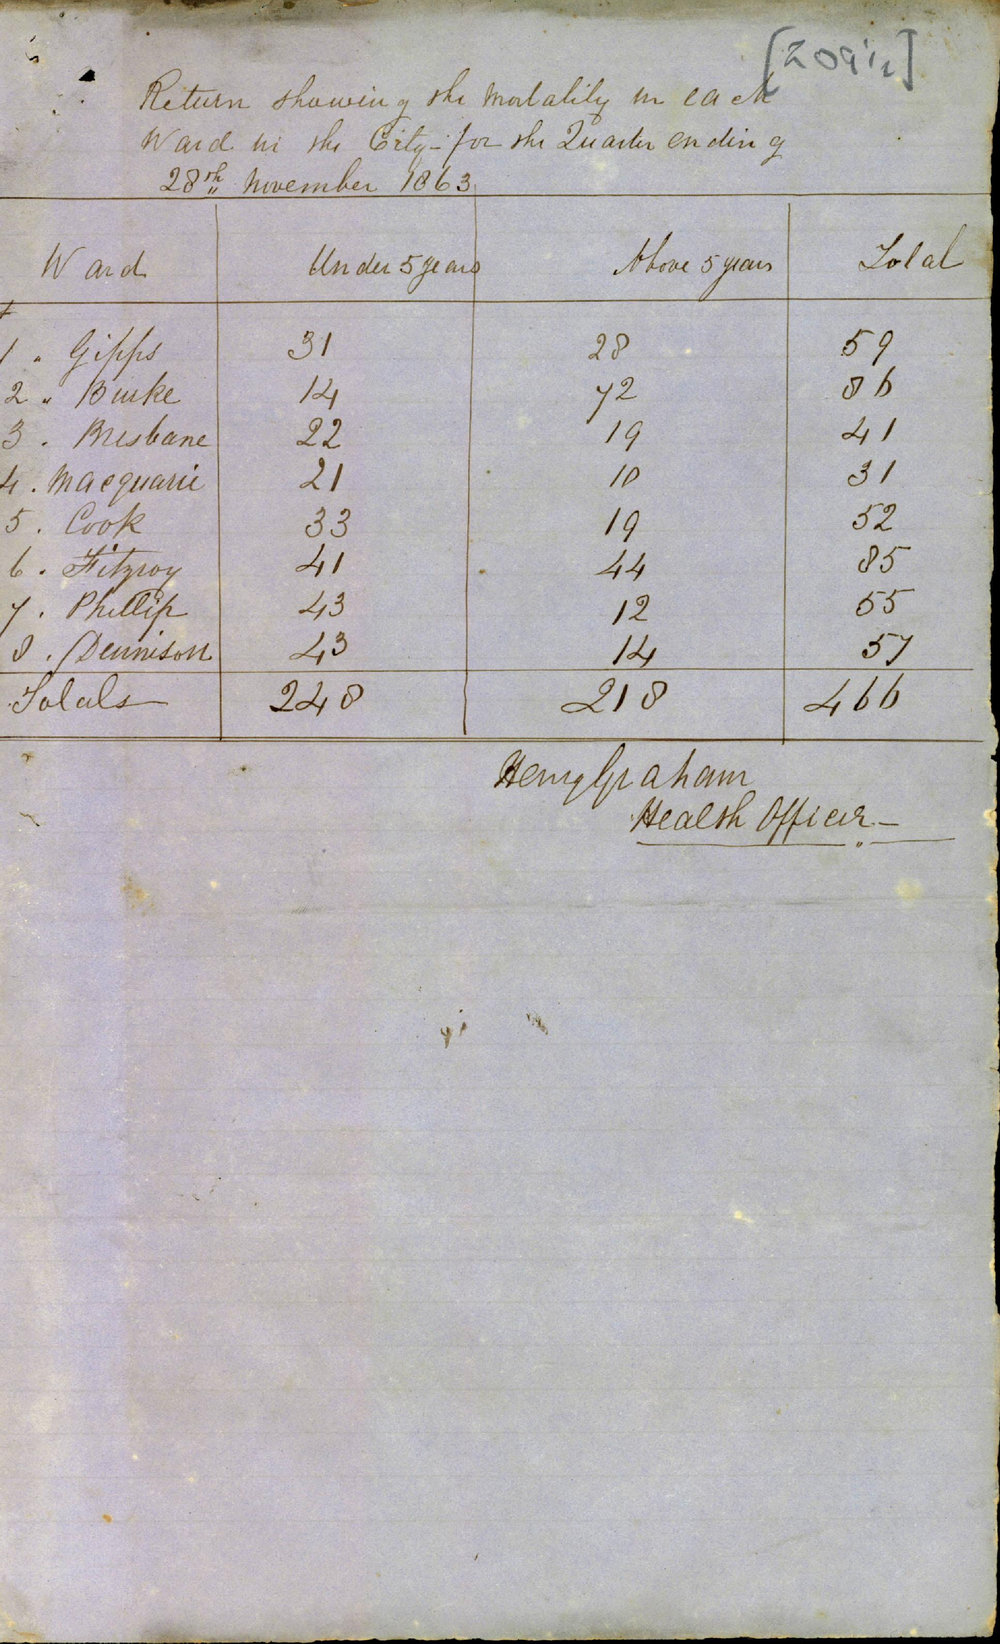 [209½]
Return showing the Mortality in each
Ward in the City - for the Quarter ending
28th November 1863
Ward Under 5 years Above 5 years Total
1 " Gipps 31 28 59
2 " Burke 14 72 86
3 . Brisbane 22 19 41
4 . Macquarie 21 10 31
5 . Cook 33 19 52
6 . Fitzroy 41 44 85
7 . Phillip 43 12 55
8 . Dennison 43 14 57
Totals 248 218 466
Henry Graham
Health Officer -